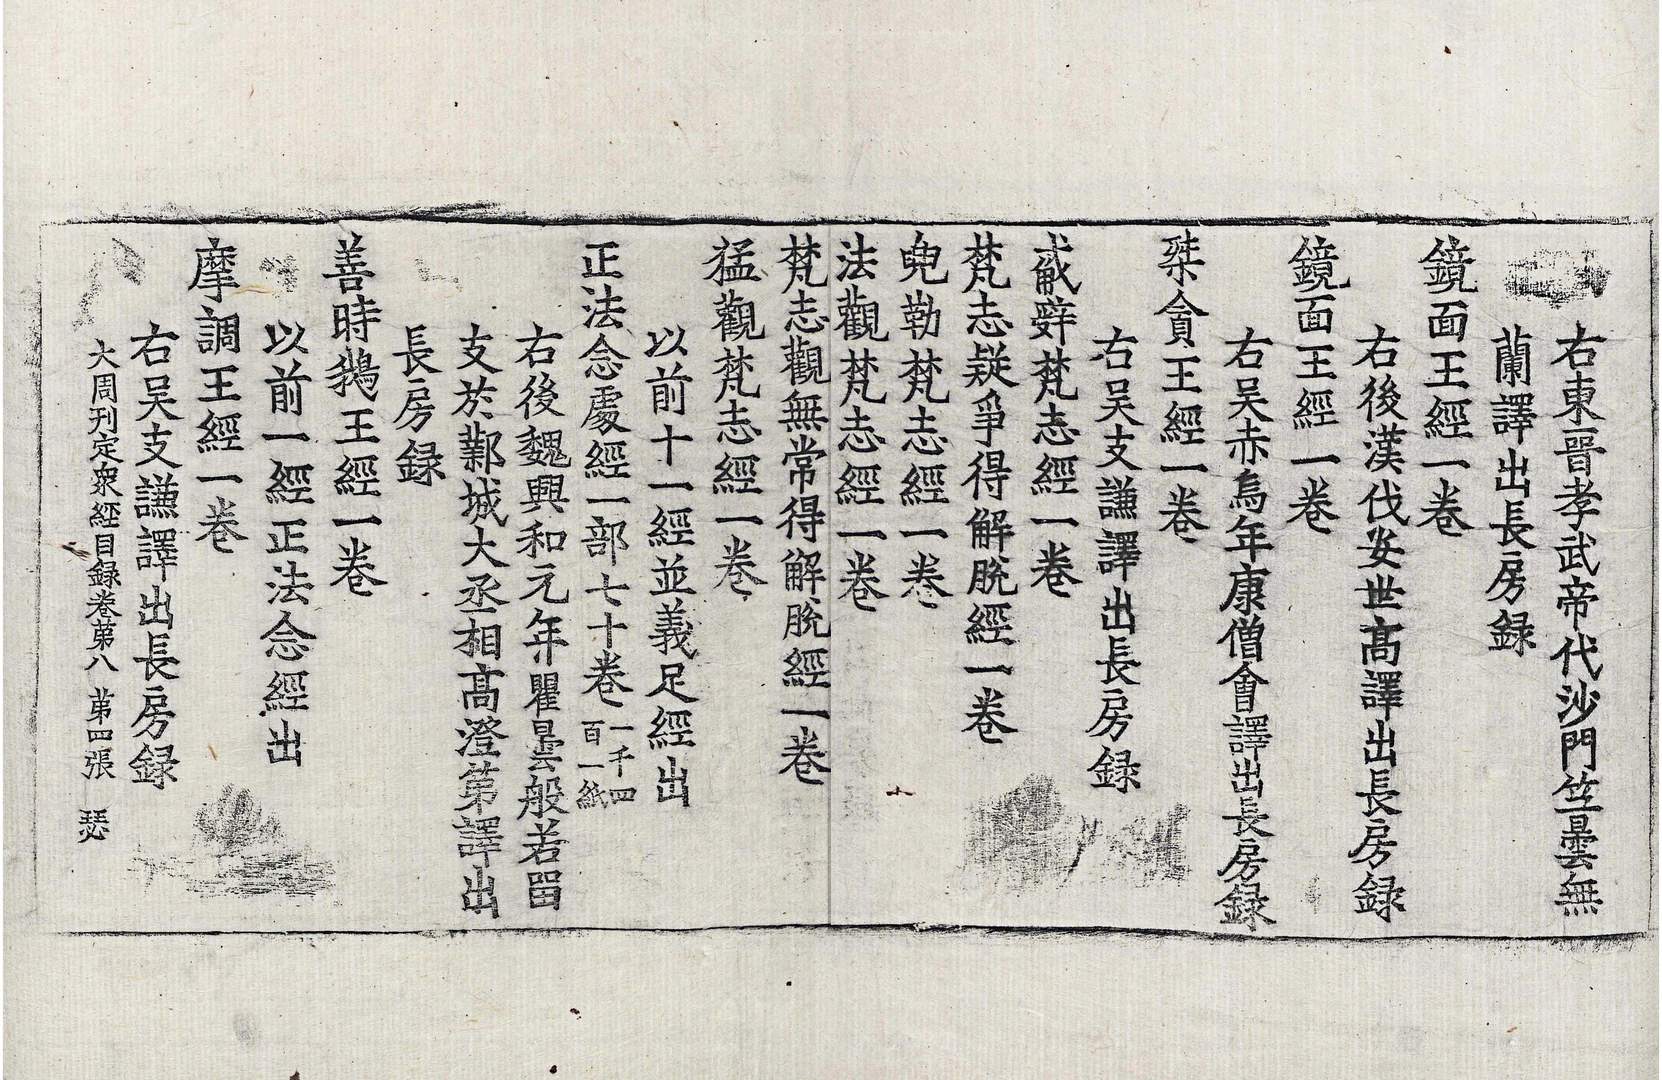 右東晉孝武帝代沙門竺曇無
蘭譯出長房録
鏡面王經一卷
右後漢代安世髙譯出長房録
鏡面王經一卷
右吴赤烏年康僧會譯出長房録
桀貪王經一卷
右吴支謙譯出長房録
辭梵志經一卷
梵志疑爭得解脫經一卷
兜勒梵志經一卷
法觀梵志經一卷
梵志觀無常得解脫經一卷
猛觀梵志經一卷
以前十一經並義足經出
正法念處經一部七十卷 一千四百一紙
右後魏興和元年瞿曇般若留
支於鄴城大丞相髙澄第譯出
長房録
善時鵝王經一卷
以前一經正法念經出
摩調王經一卷
右吴支謙譯出長房録
大周刊定衆經目録卷第八 第四張 瑟